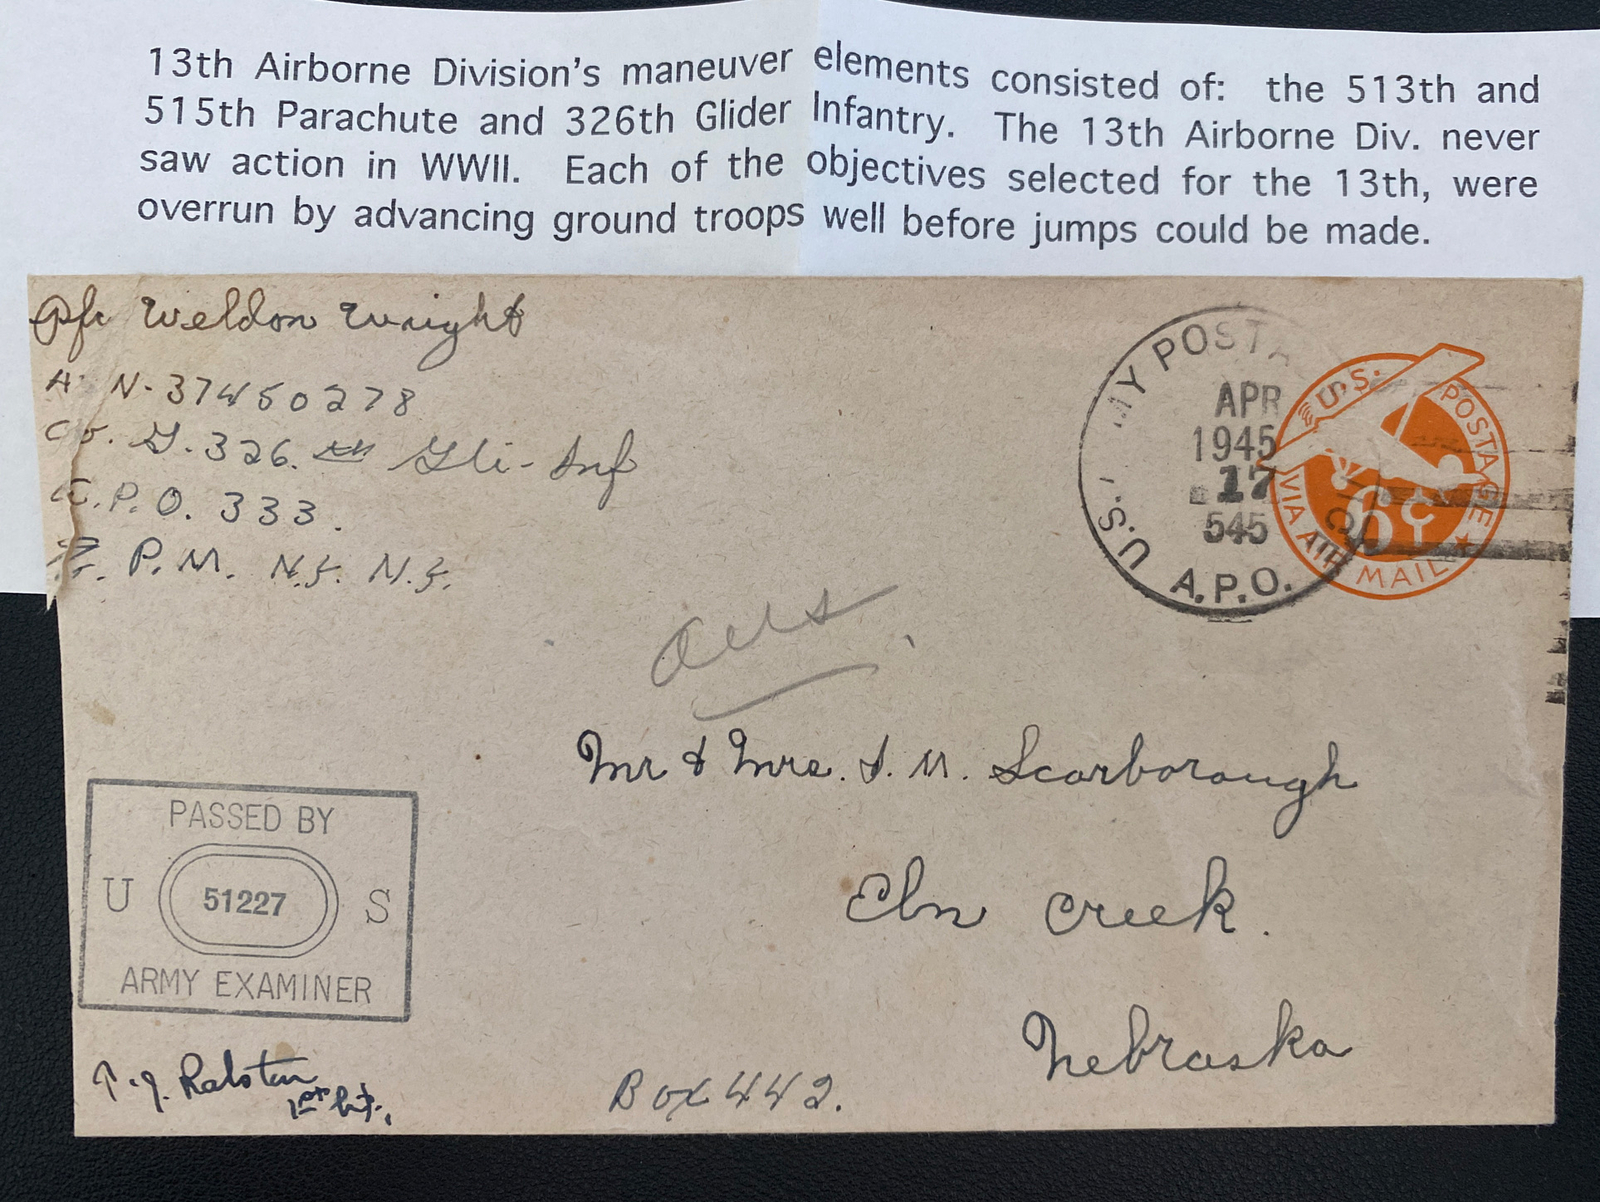 13th Airborne Division's maneuver elements consisted of: the 513th and
515th Parachute and 326th Glider Infantry. The 13th Airborne Div. never
saw action in WWII. Each of the objectives selected for the 13th, were
overrun by advancing ground troops well before jumps could be made.
Pfc Weldon Wright
A N-37450278
Co. G. 326. th Gli-Inf
A.P.O. 333.
P.M. N.Y. N.Y.
U.S. ARMY POSTA
APR
1945
17
545
A.P.O.
U.S. POSTAGE
6¢
VIA AIR MAIL
Mr & Mrs. S. M. Scarborough
Elm Creek.
Nebraska
Box 442.
PASSED BY
U 51227 S
ARMY EXAMINER
T. J. Ralston
1st Lt.